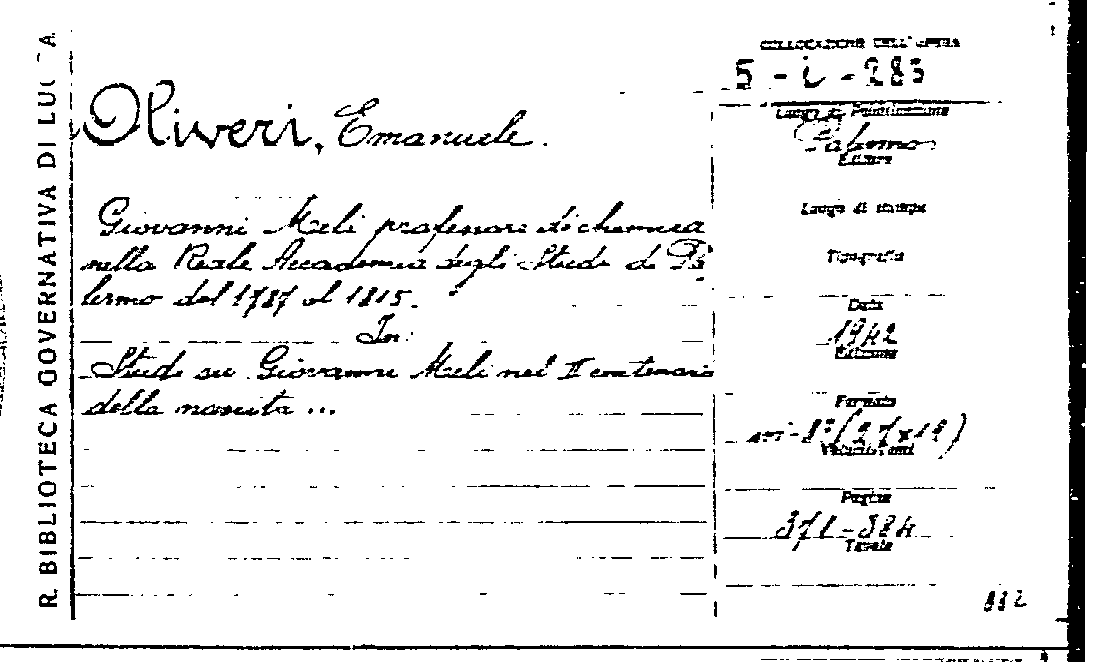 R. BIBLIOTECA GOVERNATIVA DI LUCCA
COLLOCAZIONE DELL'OPERA
5 - i - 285
Oliveri, Emanuele.
Luogo di Pubblicazione
Palermo
Editore
Giovanni Meli professore di chimica
nella Reale Accademia degli Studi di Pa
lermo dal 1787 al 1815.
In:
Studi su Giovanni Meli nel II centenario
della nascita ...
Luogo di stampa
Tipografia
Data
1942
Edizione
Formato
in-8° (27x19)
Volumi, tomi
Pagine
371-384
Tavole